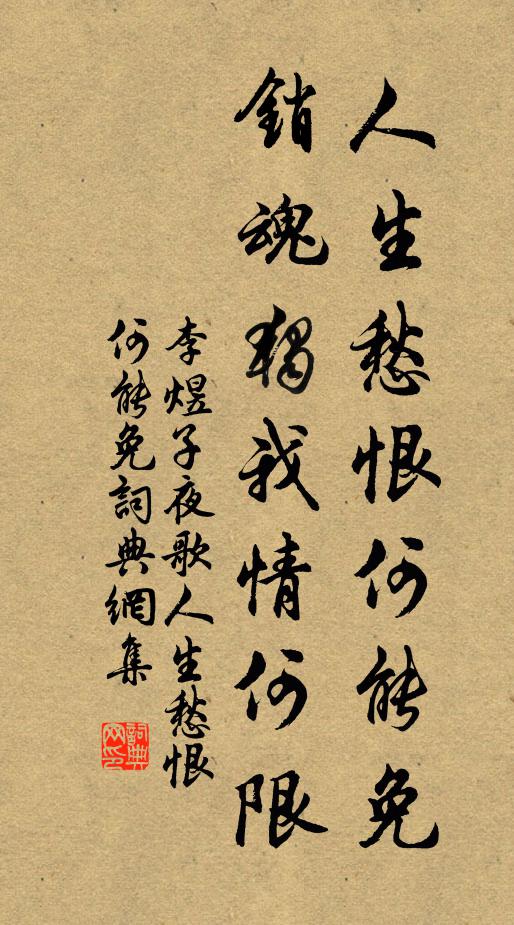 人生愁恨何能免
銷魂獨我情何限
李煜子夜歌人生愁恨
何能免詞典網集
詞典
网印